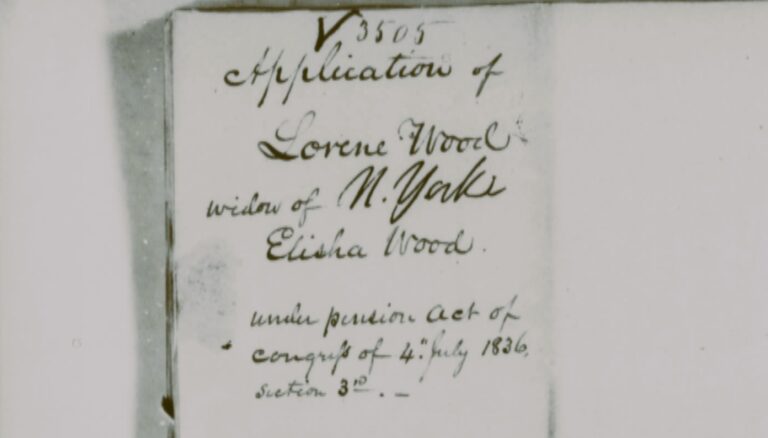 √ 3505
Application of
Lorene Wood
widow of N. York
Elisha Wood.
under pension Act of
congreſs of 4" July 1836,
section 3rd. _